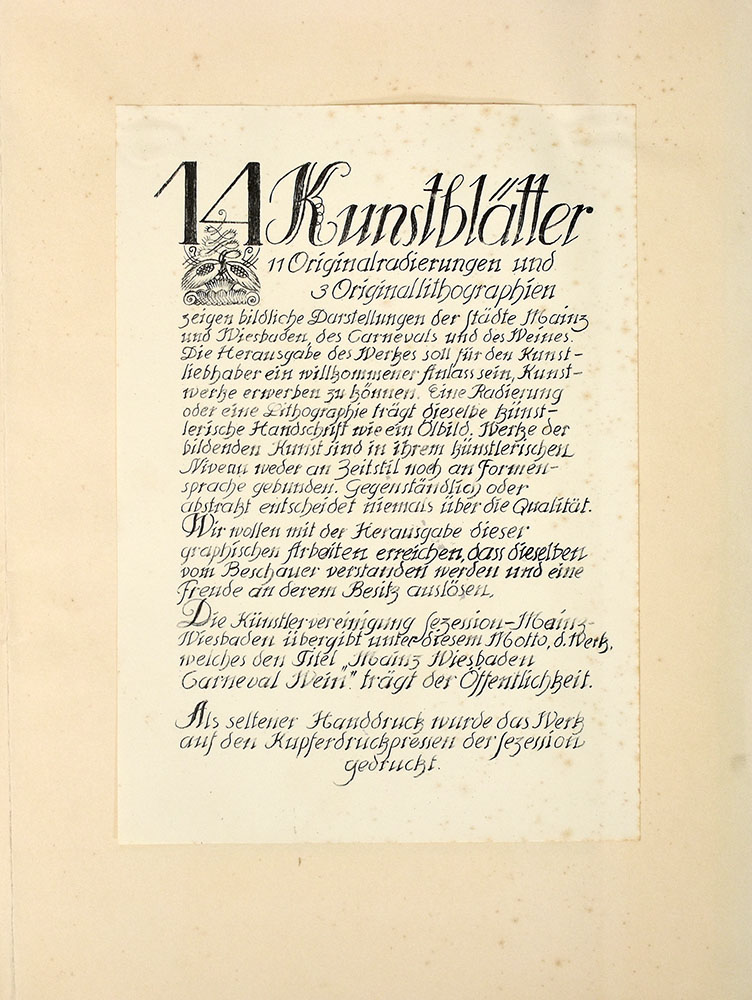 14 Kunstblätter
11 Originalradierungen und
3 Originallithographien
zeigen bildliche Darstellungen der Städte Mainz
und Wiesbaden, des Carnevals und des Weines.
Die Herausgabe des Werkes soll für den Kunst-
liebhaber ein willkommener Anlass sein, Kunst-
werke erwerben zu können. Eine Radierung
oder eine Lithographie trägt dieselbe künst-
lerische Handschrift wie ein Ölbild. Werke der
bildenden Kunst sind in ihrem künstlerischen
Niveau weder an Zeitstil noch an Formen-
sprache gebunden. Gegenständlich oder
abstrakt entscheidet niemals über die Qualität.
Wir wollen mit der Herausgabe dieser
graphischen Arbeiten erreichen, dass dieselben
vom Beschauer verstanden werden und eine
Freude an derem Besitz auslösen.
Die Künstlervereinigung Sezession-Mainz-
Wiesbaden übergibt unter diesem Motto, d. Werk,
welches den Titel „Mainz Wiesbaden
Carneval Wein" trägt der Öffentlichkeit.
Als seltener Handdruck wurde das Werk
auf den Kupferdruckpressen der Sezession
gedruckt.